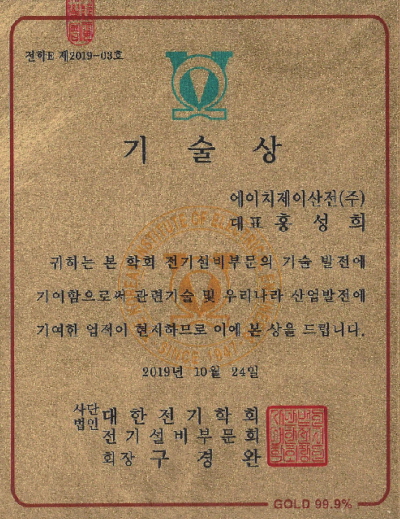 전학E 제2019-03호
기 술 상
에이치제이산전(주)
대표 홍 성 희
귀하는 본 학회 전기설비부문의 기술 발전에
기여함으로써 관련기술 및 우리나라 산업발전에
기여한 업적이 현저하므로 이에 본 상을 드립니다.
2019년 10월 24일
사단법인 대한전기학회
전기설비부문회
회장 구 경 완
GOLD 99.9%